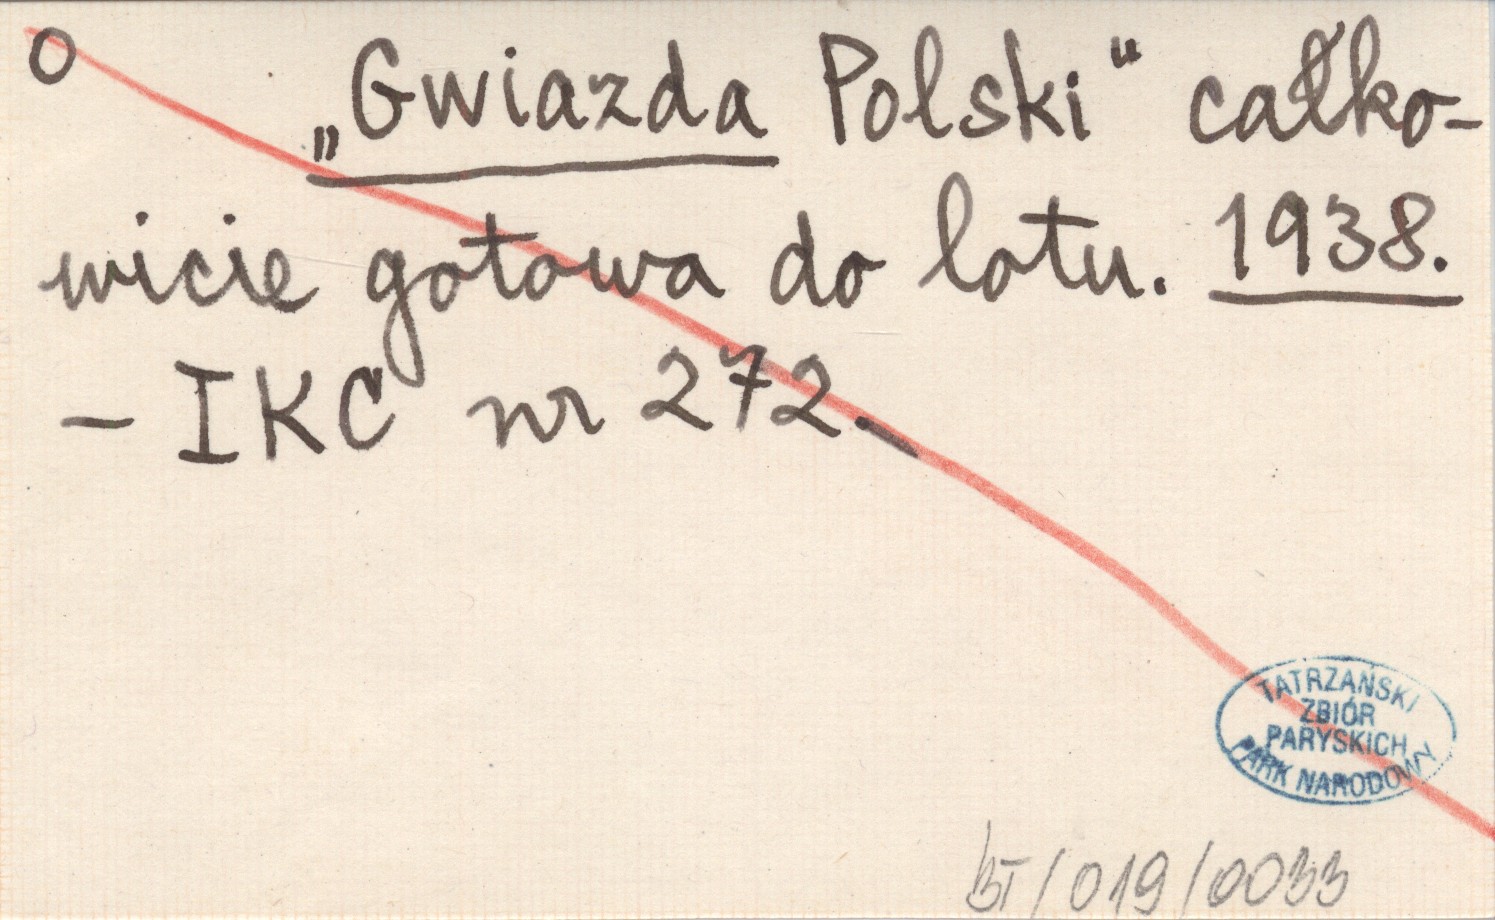 O „Gwiazda Polski“ całko-
wicie gotowa do lotu. 1938.
– IKC nr 272.
TATRZAŃSKI
ZBIÓR
PARYSKICH
PARK NARODOWY
BT/019/0033